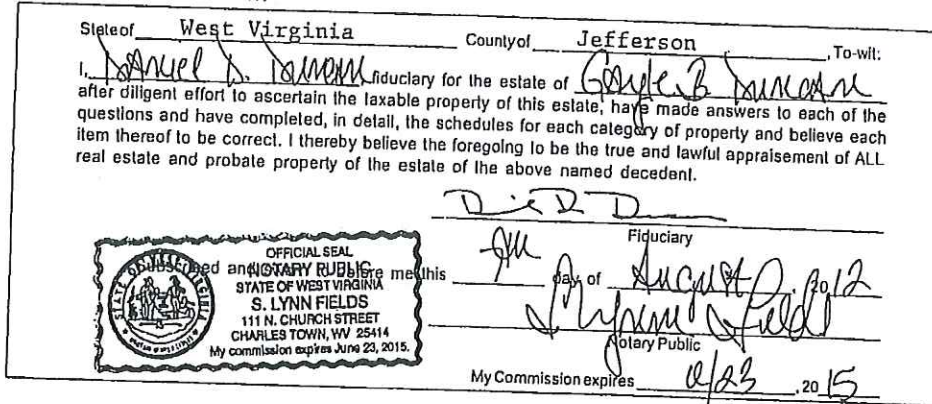 State of West Virginia County of Jefferson , To-wit:
I, Daniel D. Duncan fiduciary for the estate of Gayle B Duncan
after diligent effort to ascertain the taxable property of this estate, have made answers to each of the
questions and have completed, in detail, the schedules for each category of property and believe each
item thereof to be correct. I thereby believe the foregoing to be the true and lawful appraisement of ALL
real estate and probate property of the estate of the above named decedent.
Fiduciary
Subscribed and before me this day of August , 2012
OFFICIAL SEAL
NOTARY PUBLIC
STATE OF WEST VIRGINIA
S. LYNN FIELDS
111 N. CHURCH STREET
CHARLES TOWN, WV 25414
My commission expires June 23, 2015.
STATE OF WEST VIRGINIA
S Lynn Fields
Notary Public
My Commission expires 6/23 , 2015